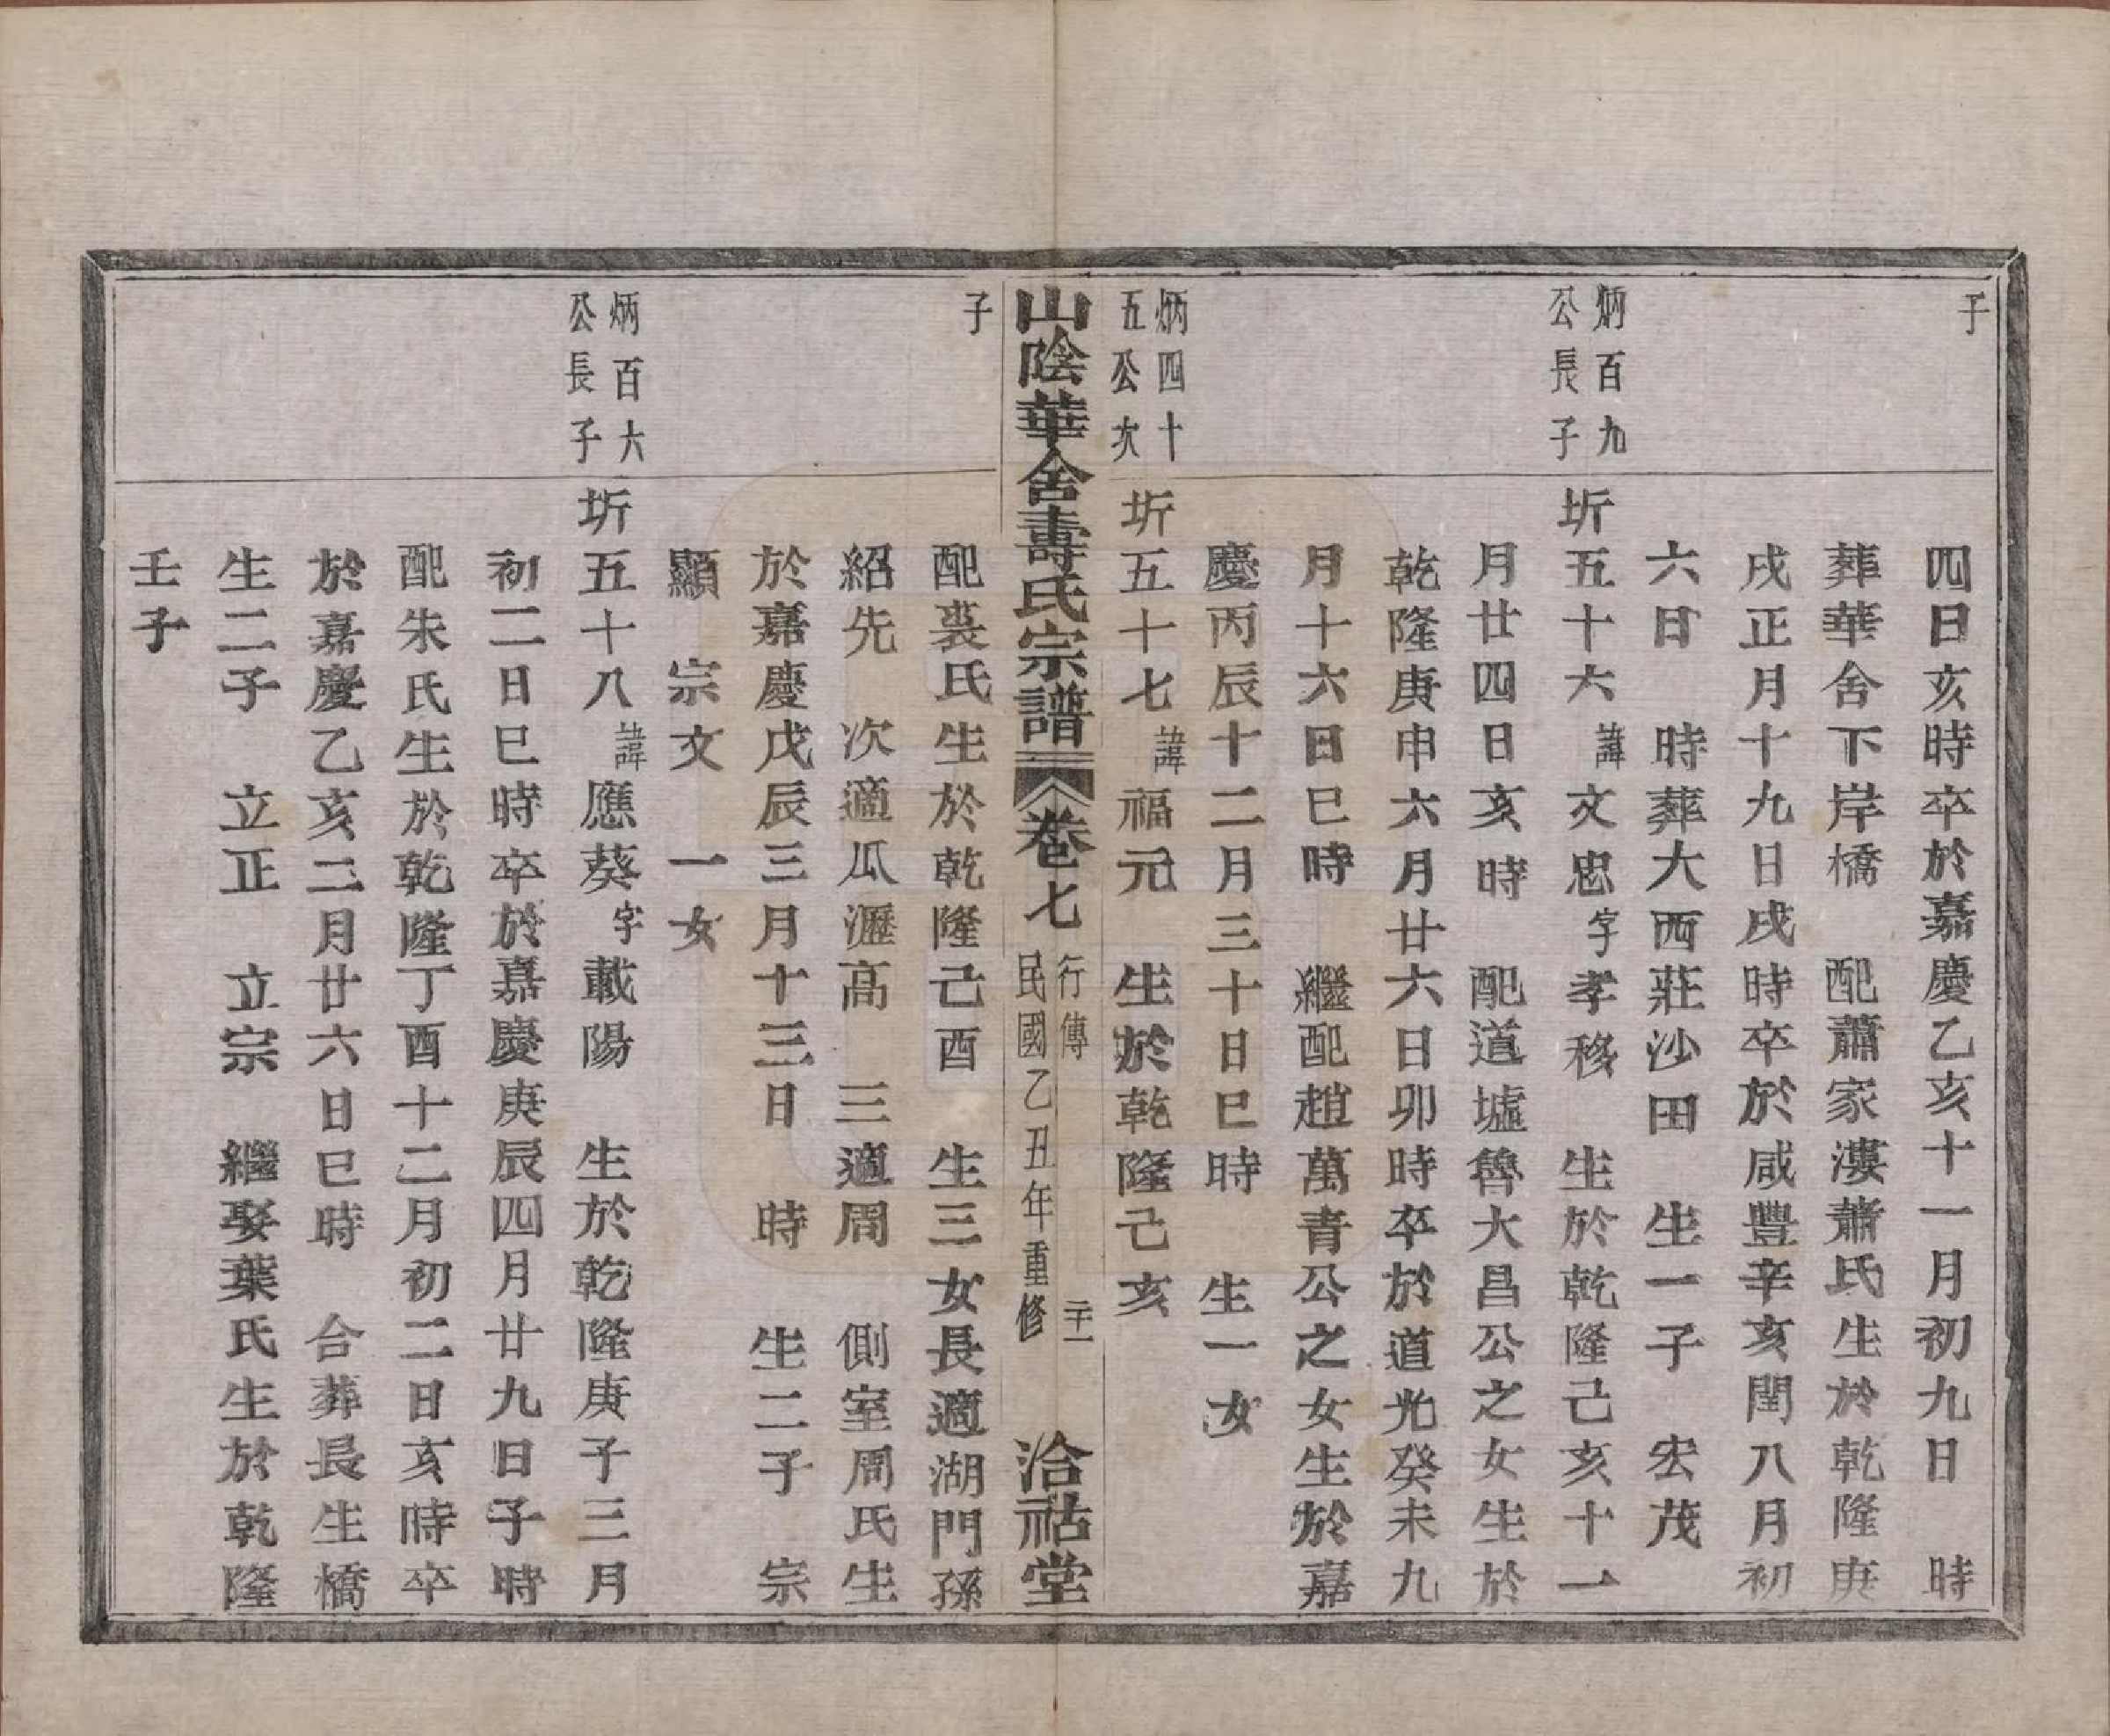 子
四日亥時卒於嘉慶乙亥十一月初九日　時
葬華舍下岸橋　配蕭家漊蕭氏生於乾隆庚
戌正月十九日戌時卒於咸豐辛亥閏八月初
六日　時葬大西莊沙田　生一子　宏茂
炳百九
公長子
圻五十六諱文忠字孝移　生於乾隆己亥十一
月廿四日亥時　配道墟魯大昌公之女生於
乾隆庚申六月廿六日卯時卒於道光癸未九
月十六日巳時　繼配趙萬青公之女生於嘉
慶丙辰十二月三十日巳時　生一女
炳四十
五公次
圻五十七諱福元　生於乾隆己亥
山陰華舍壽氏宗譜 卷七
行傳
民國乙丑年重修
二十一
洽祜堂
子
配裘氏生於乾隆己酉　生三女長適湖門孫
紹先　次適瓜瀝高　三適周　側室周氏生
於嘉慶戊辰三月十三日　時　生二子　宗
顯　宗文　一女
炳百六
公長子
圻五十八諱應葵字載陽　生於乾隆庚子三月
初二日巳時卒於嘉慶庚辰四月廿九日子時
配朱氏生於乾隆丁酉十二月初二日亥時卒
於嘉慶乙亥二月廿六日巳時　合葬長生橋
生二子　立正　立宗　繼娶葉氏生於乾隆
壬子